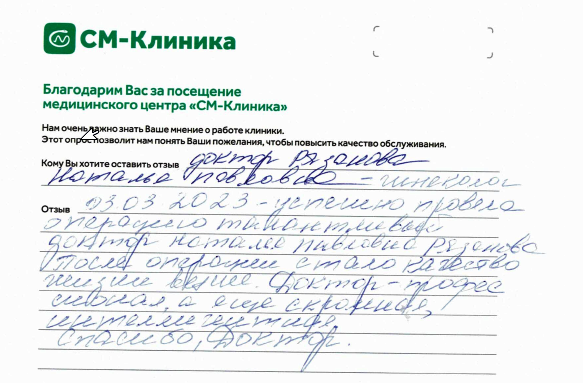 СМ-Клиника
Благодарим Вас за посещение
медицинского центра «СМ-Клиника»
Нам очень важно знать Ваше мнение о работе клиники.
Этот опрос позволит нам понять Ваши пожелания, чтобы повысить качество обслуживания.
Кому Вы хотите оставить отзыв доктор Рязанова
Наталья Павловна - гинеколог
Отзыв 03.03 2023 - успешно провела
операцию талантливый
доктор Наталья Павловна Рязанова
После операции стало качество
жизни выше. Доктор - профес
сионал, а еще скромная,
интеллигентная
Спасибо, Доктор.